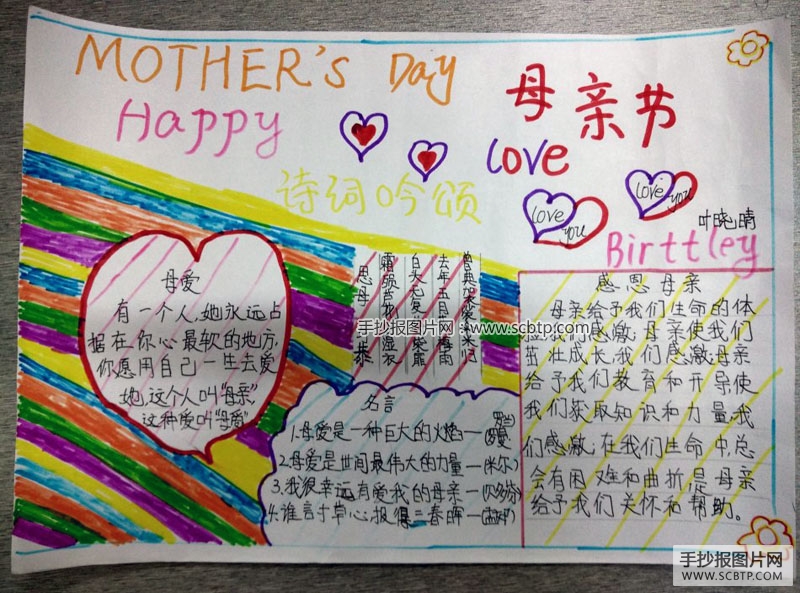 MOTHER's Day
Happy
母亲节
love
love you
love you
诗词吟颂
叶晓晴
Birttley
母爱
有一个人,她永远占
据在你心最软的地方,
你愿用自己一生去爱
她,这个人叫"母亲"
这种爱叫"母爱"
思母 恭
霜殒芦花 湿衣
白头无复
去年五月 梅雨
手抄报图片网:www.scbtp.com
名言
1.母爱是一种巨大的火焰—
2.母爱是世间最伟大的力量—(米尔)
3.我很幸运有爱我的母亲—(贝多芬)
4.谁言寸草心,报得三春晖—(孟郊)
感恩母亲
母亲给予我们生命的体
验我们感激,母亲使我们
茁壮成长,我们感激,母亲
给予我们教育和开导使
我们获取知识和力量,我
们感激,在我们生命中,总
会有困难和曲折,是母亲
给予我们关怀和帮助。
手抄报图片网
WWW.SCBTP.COM